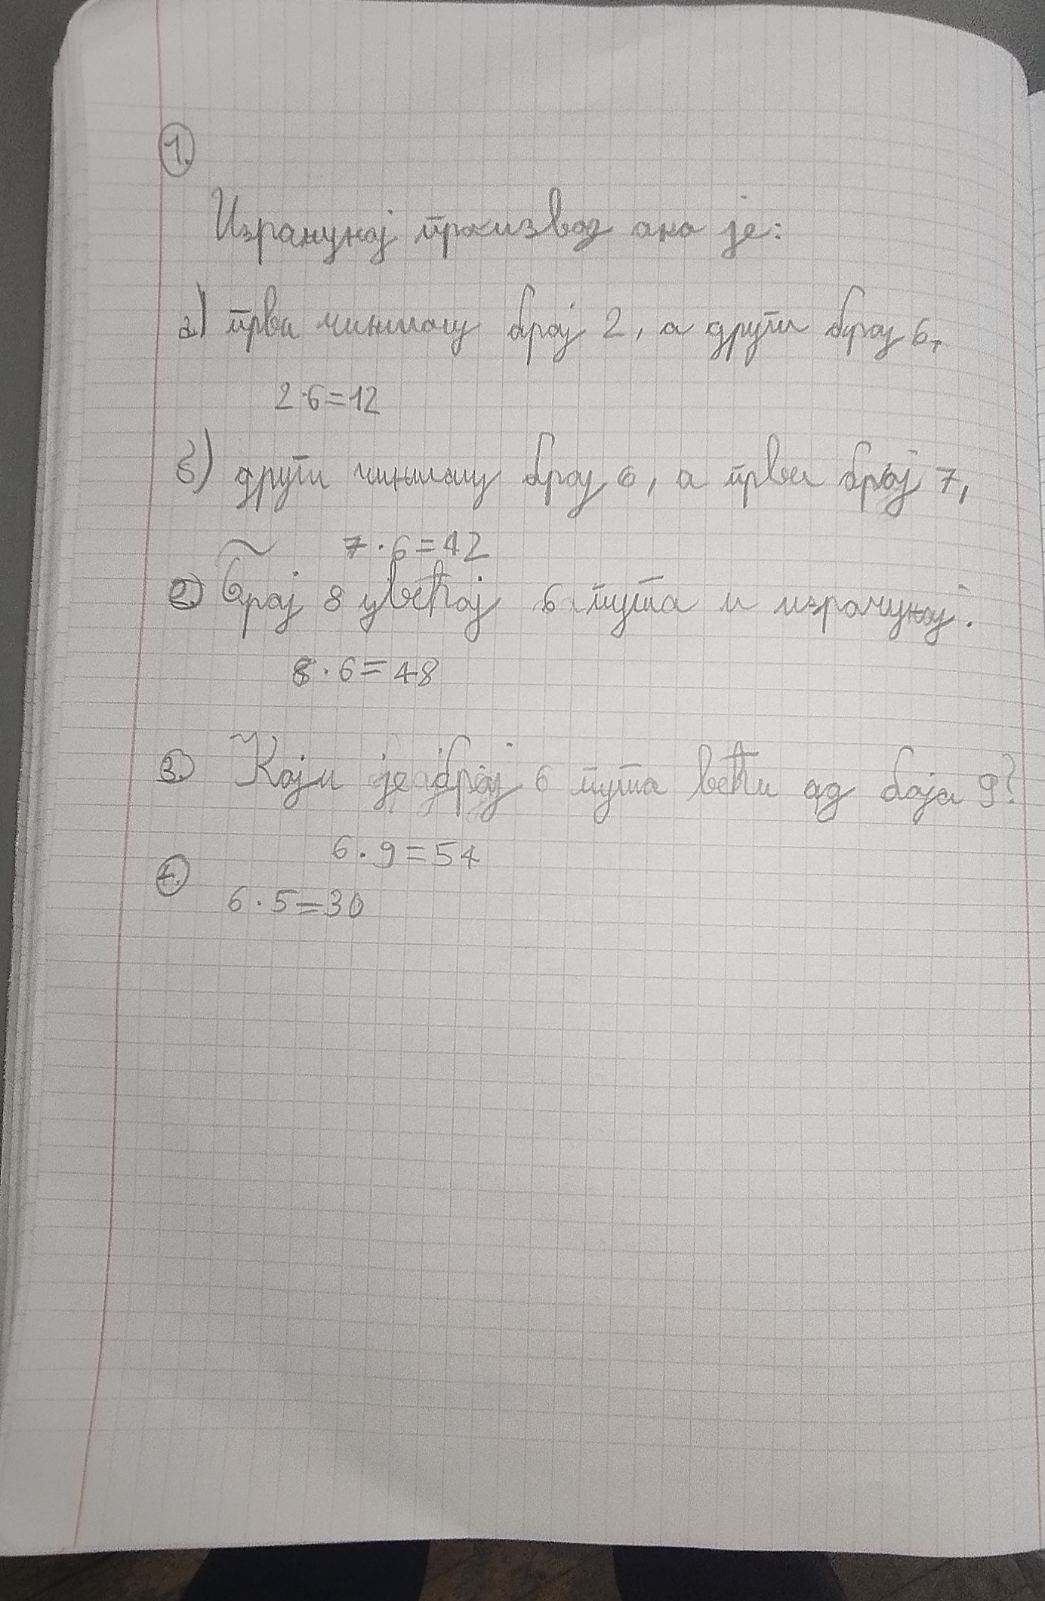 1.
Израчунај производ ако је:
а) први чинилац број 2, а други број 6,
2·6=12
б) други чинилац број 6, а први број 7,
7·6=42
2. Број 8 увећај 6 пута и израчунај.
8·6=48
3. Који је број 6 пута већи од боја 9?
6·9=54
4.
6·5=30